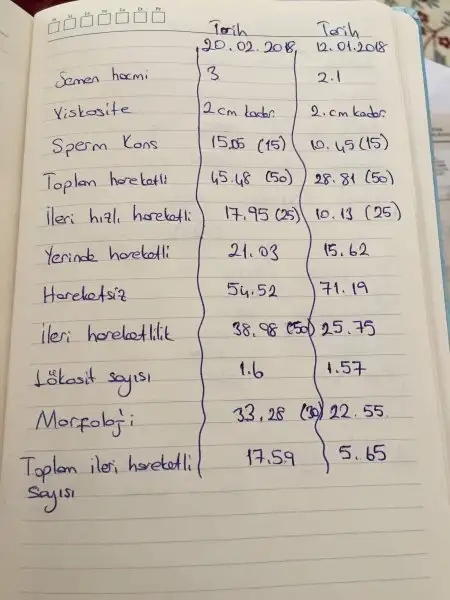 Tarih Tarih
20.02.2018 12.01.2018
Semen hacmi 3 2.1
Viskosite 2 cm kadar. 2.cm kadar.
Sperm Kons 15.05 (15) 10.45 (15)
Toplam hareketli 45.48 (50) 28.81 (50)
İleri hızlı hareketli 17.95 (25) 10.13 (25)
Yerinde hareketli 21.03 15.62
Hareketsiz 54.52 71.19
ileri hareketlilik 38.98 (50) 25.75
Lökosit sayısı 1.6 1.57
Morfoloji 33.28 (30) 22.55
Toplam ileri hareketli 17.59 5.65
Sayısı